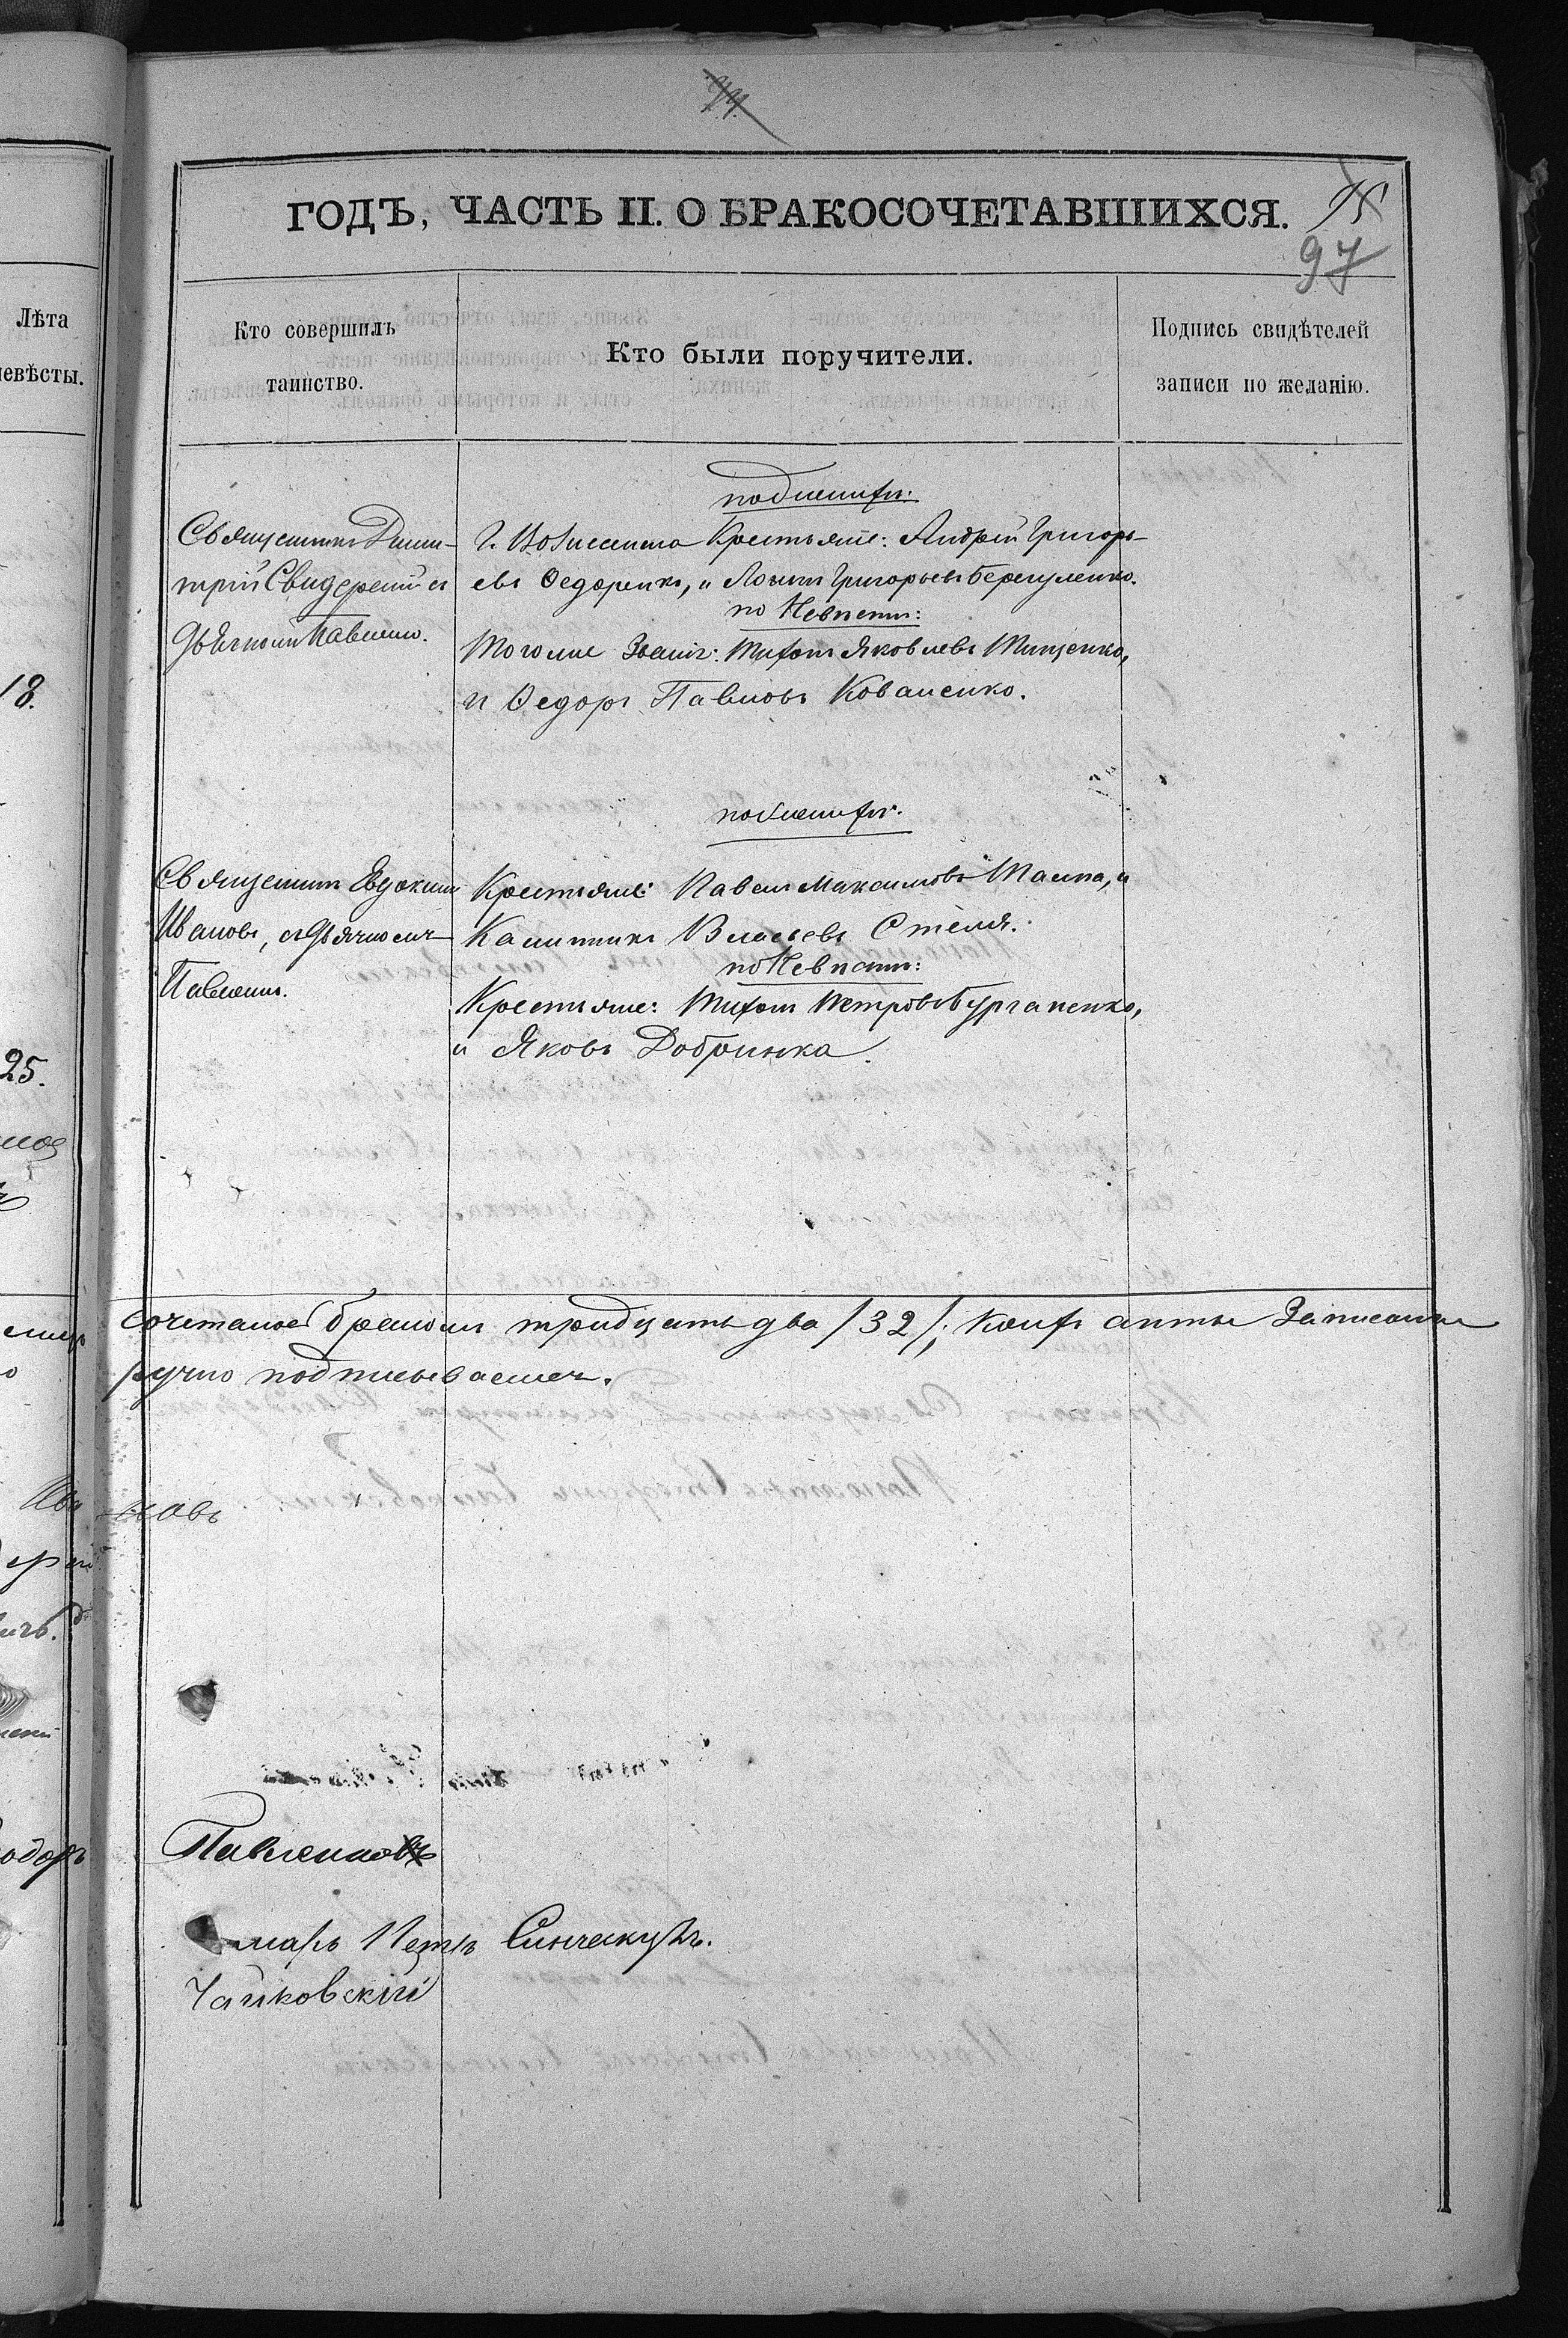 ГОДЪ, ЧАСТЬ II. О БРАКОСОЧЕТАВШИХСЯ.
97
Лѣта
невѣсты.
Кто совершилъ
таинство.
Кто были поручители.
Подпись свидѣтелей
записи по желанію.
18.
Священникъ Дими-
трій Свидерскій съ
дьячкомъ Павленко.
по женихѣ:
Г. Вознесенска Крестьяне: Андрей Григорь-
евъ Федоренко, и Логинъ Григорьевъ
по Невѣстѣ:
Того же Званія: Тихонъ Яковлевъ Тищенко,
и Федоръ Павловъ Коваленко.
25.
Священникъ Евдокимъ
Ивановъ, съ дьячкомъ
Павленко.
по женихѣ:
Крестьяне: Павелъ Максимовъ и
Калиникъ Власьевъ Стеля.
по Невѣстѣ:
Крестьяне: Тихонъ Петровъ
и Яковъ Добринка.
сочетаное бракомъ тридцать два /32/; коихъ акты Записаны
ручно подписываемся.
Ива новъ
Павленко
Петръ
Чайковскій